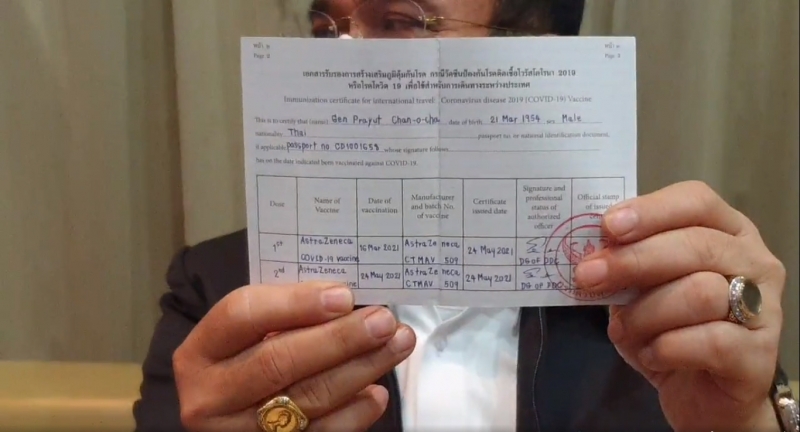 หน้า ๑ หน้า ๑
เอกสารรับรองการสร้างเสริมภูมิคุ้มกันโรค กรณีวัคซีนป้องกันโรคติดเชื้อไวรัสโคโรนา 2019
หรือโรคโควิด 19 เพื่อใช้สำหรับการเดินทางระหว่างประเทศ
Immunization certificate for international travel : Coronavirus disease 2019 (COVID-19) Vaccine
This is to certify that (name) Gen Prayut Chan-o-cha date of birth 21 Mar 1954 sex Male
nationality Thai passport no. or national identification document,
if applicable passport no whose signature follows
has on the date indicated been vaccinated against COVID-19.
Dose Name of Vaccine Date of vaccination Manufacturer and batch No. of vaccine Certificate issued date Signature and professional status of authorized officer Official stamp of issued
1st AstraZeneca COVID-19 vaccine 16 Mar 2021 AstraZeneca CTMAV 509 24 May 2021 DG OF DDC
2nd AstraZeneca 24 May 2021 AstraZeneca CTMAV 509 24 May 2021 DG OF DDC